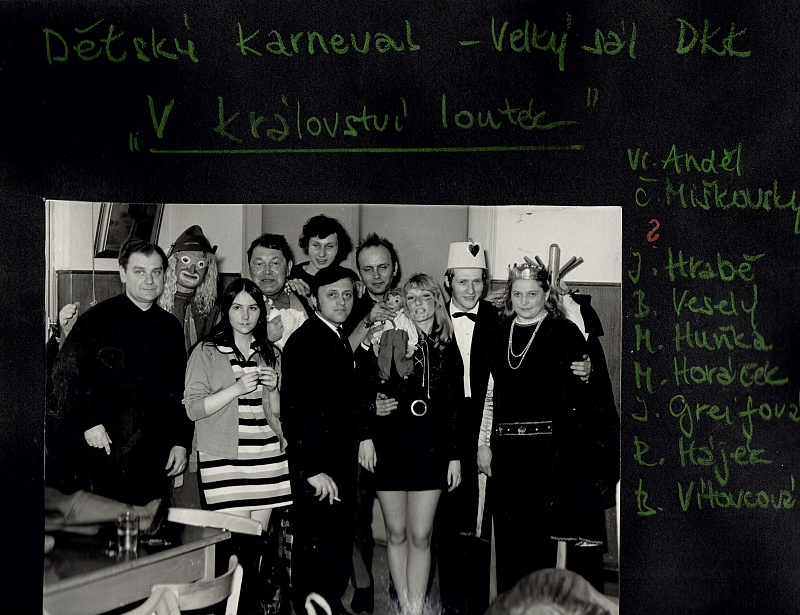 Dětský karneval – Velký sál DKK
„V království loutek"
Vl. Anděl
Č. Miškovský
?
J. Hrabě
B. Veselý
M. Huňka
M. Horáček
J. Greifová
R. Hájek
B. Vítovcová